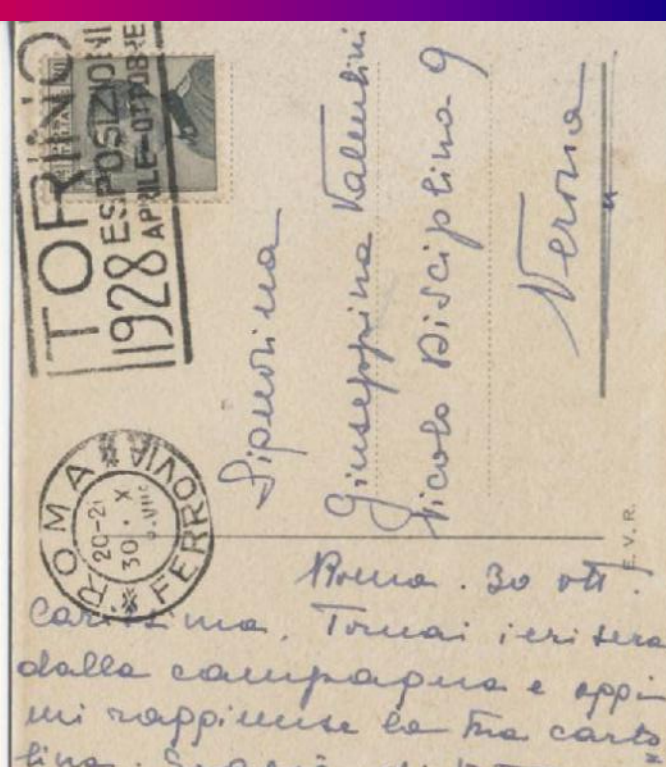 TORINO
1928 ESPOSIZIONI
APRILE-OTTOBRE
ROMA
20-21
30 · X
FERROVIA
Signorina
Giuseppina Valentini
Vicolo Disciplina 9
Verona
E. V. R.
Roma. 30 ott.
Carissima. Tornai ieri sera
dalla campagna e oggi
mi raggiunse la tua carto
lina.